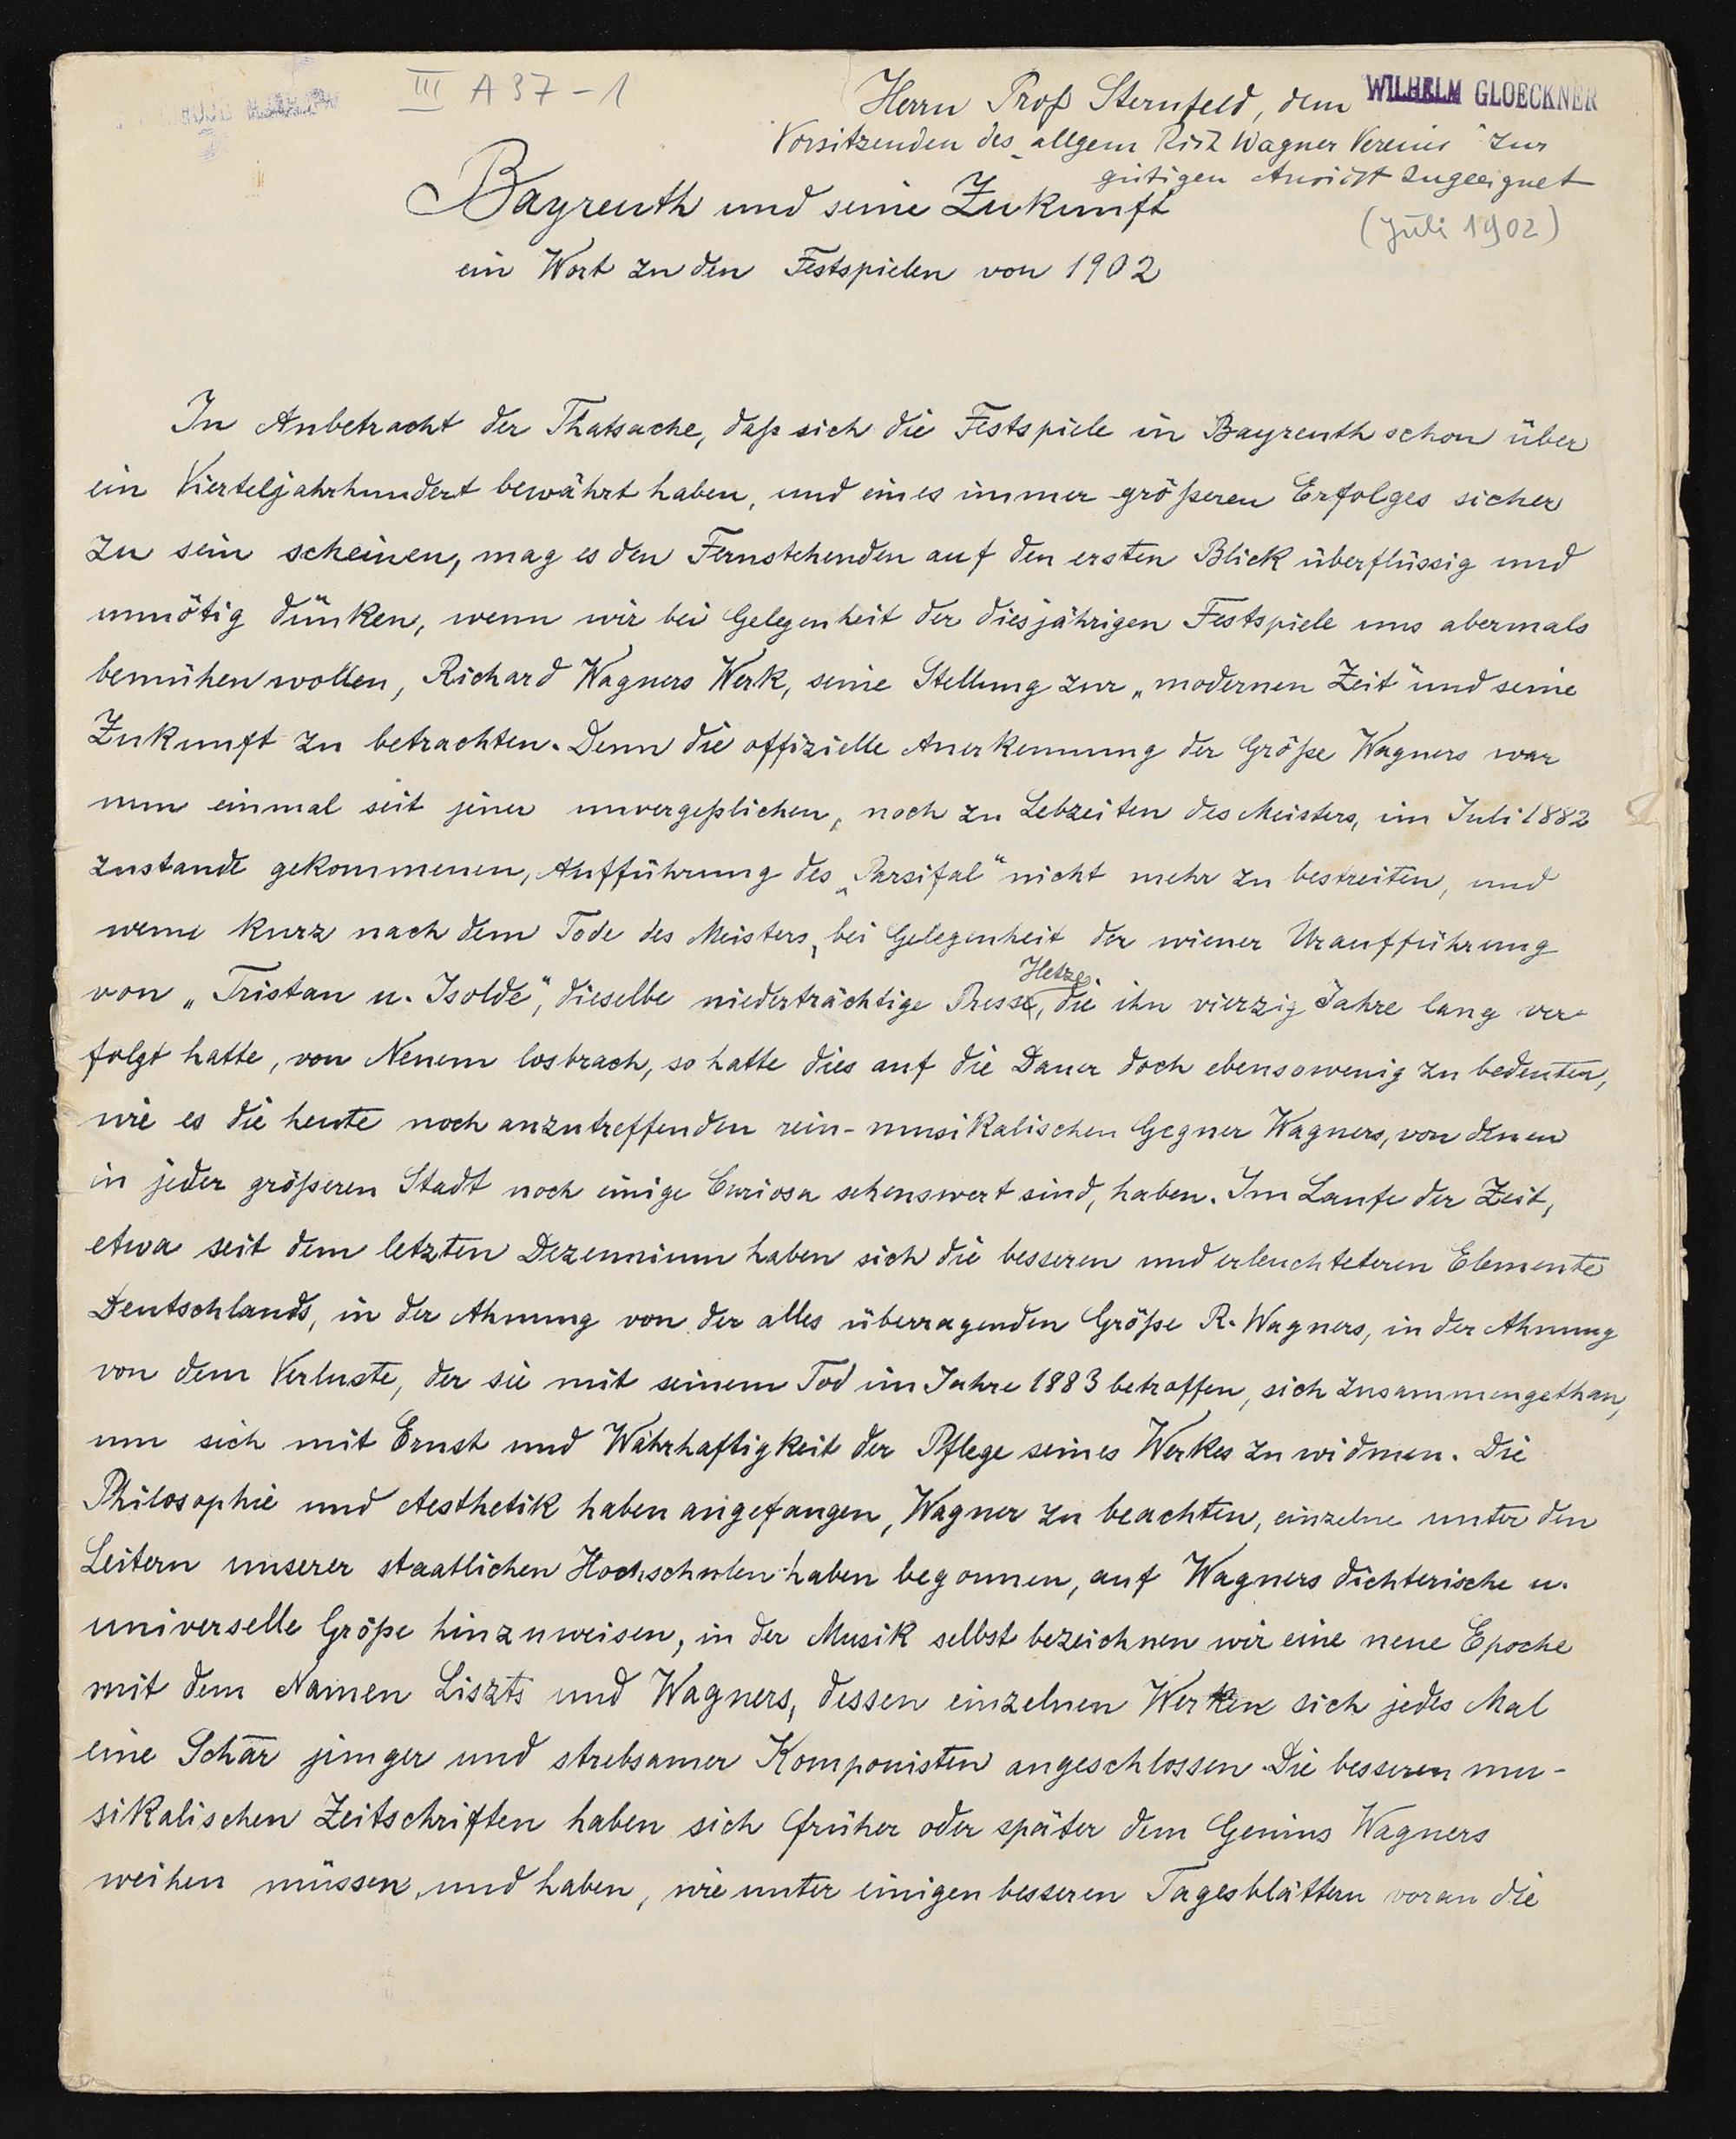 III A 37 - 1
WILHELM GLOECKNER
Herrn Prof Sternfeld, dem
Vorsitzenden des „allgem Rich Wagner Vereins" zur
gütigen Ansicht zugeeignet
(Juli 1902)
Bayreuth und seine Zukunft
ein Wort zu den Festspielen von 1902
In Anbetracht der Thatsache, daß sich die Festspiele in Bayreuth schon über
ein Vierteljahrhundert bewährt haben, und eines immer größeren Erfolges sicher
zu sein scheinen, mag es den Fernstehenden auf den ersten Blick überflüssig und
unnötig dünken, wenn wir bei Gelegenheit der diesjährigen Festspiele uns abermals
bemühen wollen, Richard Wagners Werk, seine Stellung zur „modernen Zeit" und seine
Zukunft zu betrachten. Denn die offizielle Anerkennung der Größe Wagners war
nun einmal seit jener unvergeßlichen, noch zu Lebzeiten des Meisters, im Juli 1882
zustande gekommenen, Aufführung des „Parsifal" nicht mehr zu bestreiten, und
wenn kurz nach dem Tode des Meisters, bei Gelegenheit der wiener Uraufführung
von „Tristan u. Isolde", dieselbe niederträchtige Presse Hetze, die ihn vierzig Jahre lang ver-
folgt hatte, von Neuem losbrach, so hatte dies auf die Dauer doch ebensowenig zu bedeuten,
wie es die heute noch anzutreffenden rein-musikalischen Gegner Wagners, von denen
in jeder größeren Stadt noch einige Curiosa sehenswert sind, haben. Im Laufe der Zeit,
etwa seit dem letzten Dezennium haben sich die besseren und erleuchteteren Elemente
Deutschlands, in der Ahnung von der alles überragenden Größe R. Wagners, in der Ahnung
von dem Verluste, der sie mit seinem Tod im Jahre 1883 betroffen, sich zusammengethan,
um sich mit Ernst und Wahrhaftigkeit der Pflege seines Werkes zu widmen. Die
Philosophie und Aesthetik haben angefangen, Wagner zu beachten, einzelne unter den
Leitern unserer staatlichen Hochschulen haben begonnen, auf Wagners dichterische u.
universelle Größe hinzuweisen, in der Musik selbst bezeichnen wir eine neue Epoche
mit dem Namen Liszts und Wagners, dessen einzelnen Werken sich jedes Mal
eine Schar junger und strebsamer Komponisten angeschlossen. Die besseren mu-
sikalischen Zeitschriften haben sich früher oder später dem Genius Wagners
weihen müssen, und haben, wie unter einigen besseren Tagesblättern voran die